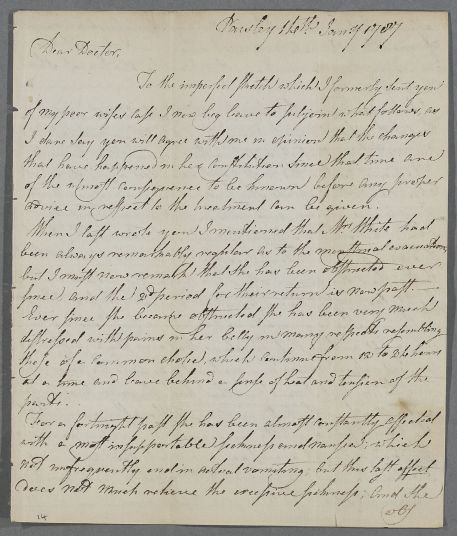 Paisley 14th Jany 1787
Dear Doctor,
To the imperfect sketch which I formerly sent you
of my poor wifes case I now beg leave to subjoin what follows, as
I dare say you will agree with me in opinion that the changes
that have happened in her constitution since that time are
of the utmost consequence to be known before any proper
advice in respect to the treatment can be given.
When I last wrote you I mentioned that Mrs White had
been always remarkably regular as to the menstrual evacuation,
but I must now remark that she has been obstructed ever
since and the 3d period for their return is now past
Ever since she became obstructed she has been very much
distressed with pains in her belly in many respects resembling
those of a common cholic, which continue from 12 to 24 hours
at a time and leave behind a sense of heat and tension of the
parts.
For a fortnight past she has been almost constantly affected
with a most insupportable sickness and nausea; which
not unfrequently end in actual vomiting, but this last effect
does not much relieve the excessive sickness; and she
14